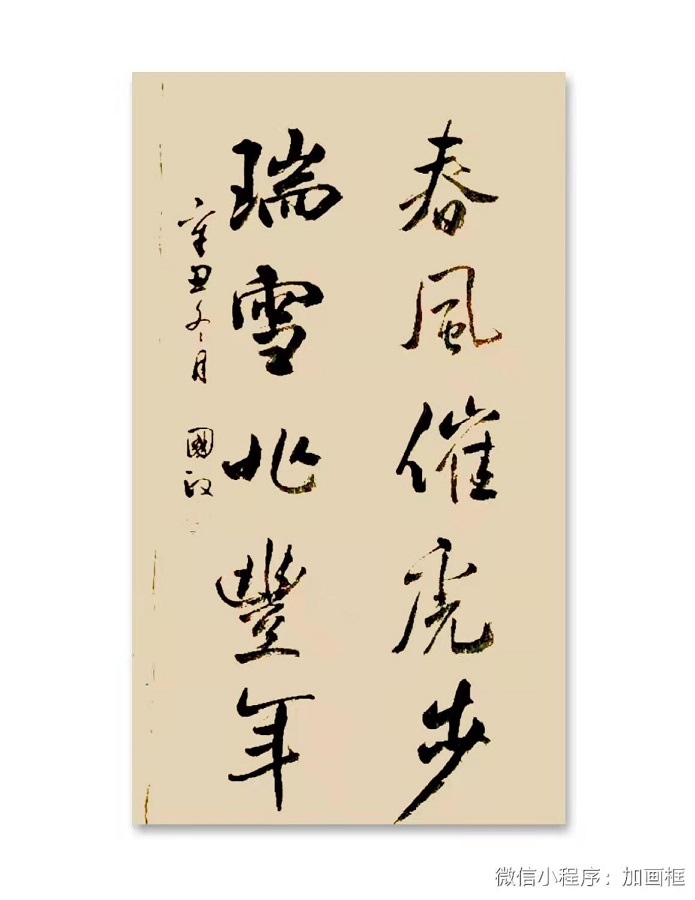 春風催虎步
瑞雪兆豐年
辛丑冬月 國政
微信小程序：加画框